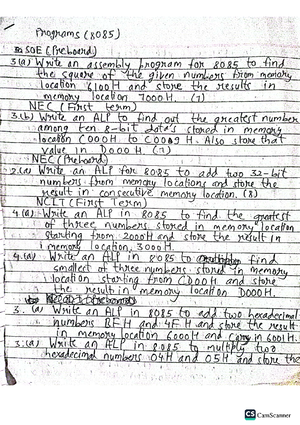 Programs (8085)
SOE (Preboard)
3.(a) Write an assembly program for 8085 to find
the square of the given numbers from memory
location 6100H and store the results in
memory location 7000H. (7)
NEC (First term)
3.(b) Write an ALP to find out the greatest number
among ten 8-bit data's stored in memory
location C000H to C009H. Also store that
value in D000H (7)
NEC (Preboard)
2.(a) Write an ALP for 8085 to add two 32-bit
numbers from memory locations and store the
result in consecutive memory location. (8)
NCLT (First Term)
4.(a) Write an ALP in 8085 to find the greatest
of three numbers stored in memory location
starting from 2000H and store the result in
memory location, 3000H.
4.(a) Write an ALP in 8085 to find
smallest of three numbers stored in memory
location starting from C000H and store
the result in memory location D000H
3.(a) Write an ALP in 8085 to add two hexadecimal
numbers BFH and 4FH and store the result
in memory location 6000H and carry in 6001H.
3.(a) Write an ALP in 8085 to multiply two
hexadecimal numbers 04H and 05H and store the
CS CamScanner